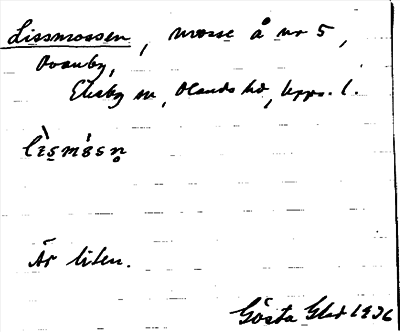 Lissmossen, mosse å nr 5,
Ovanby,
Ekeby sn, Olands hd, Upps. l.
lìsmósn̥
Är liten.
Gösta Glad 1936